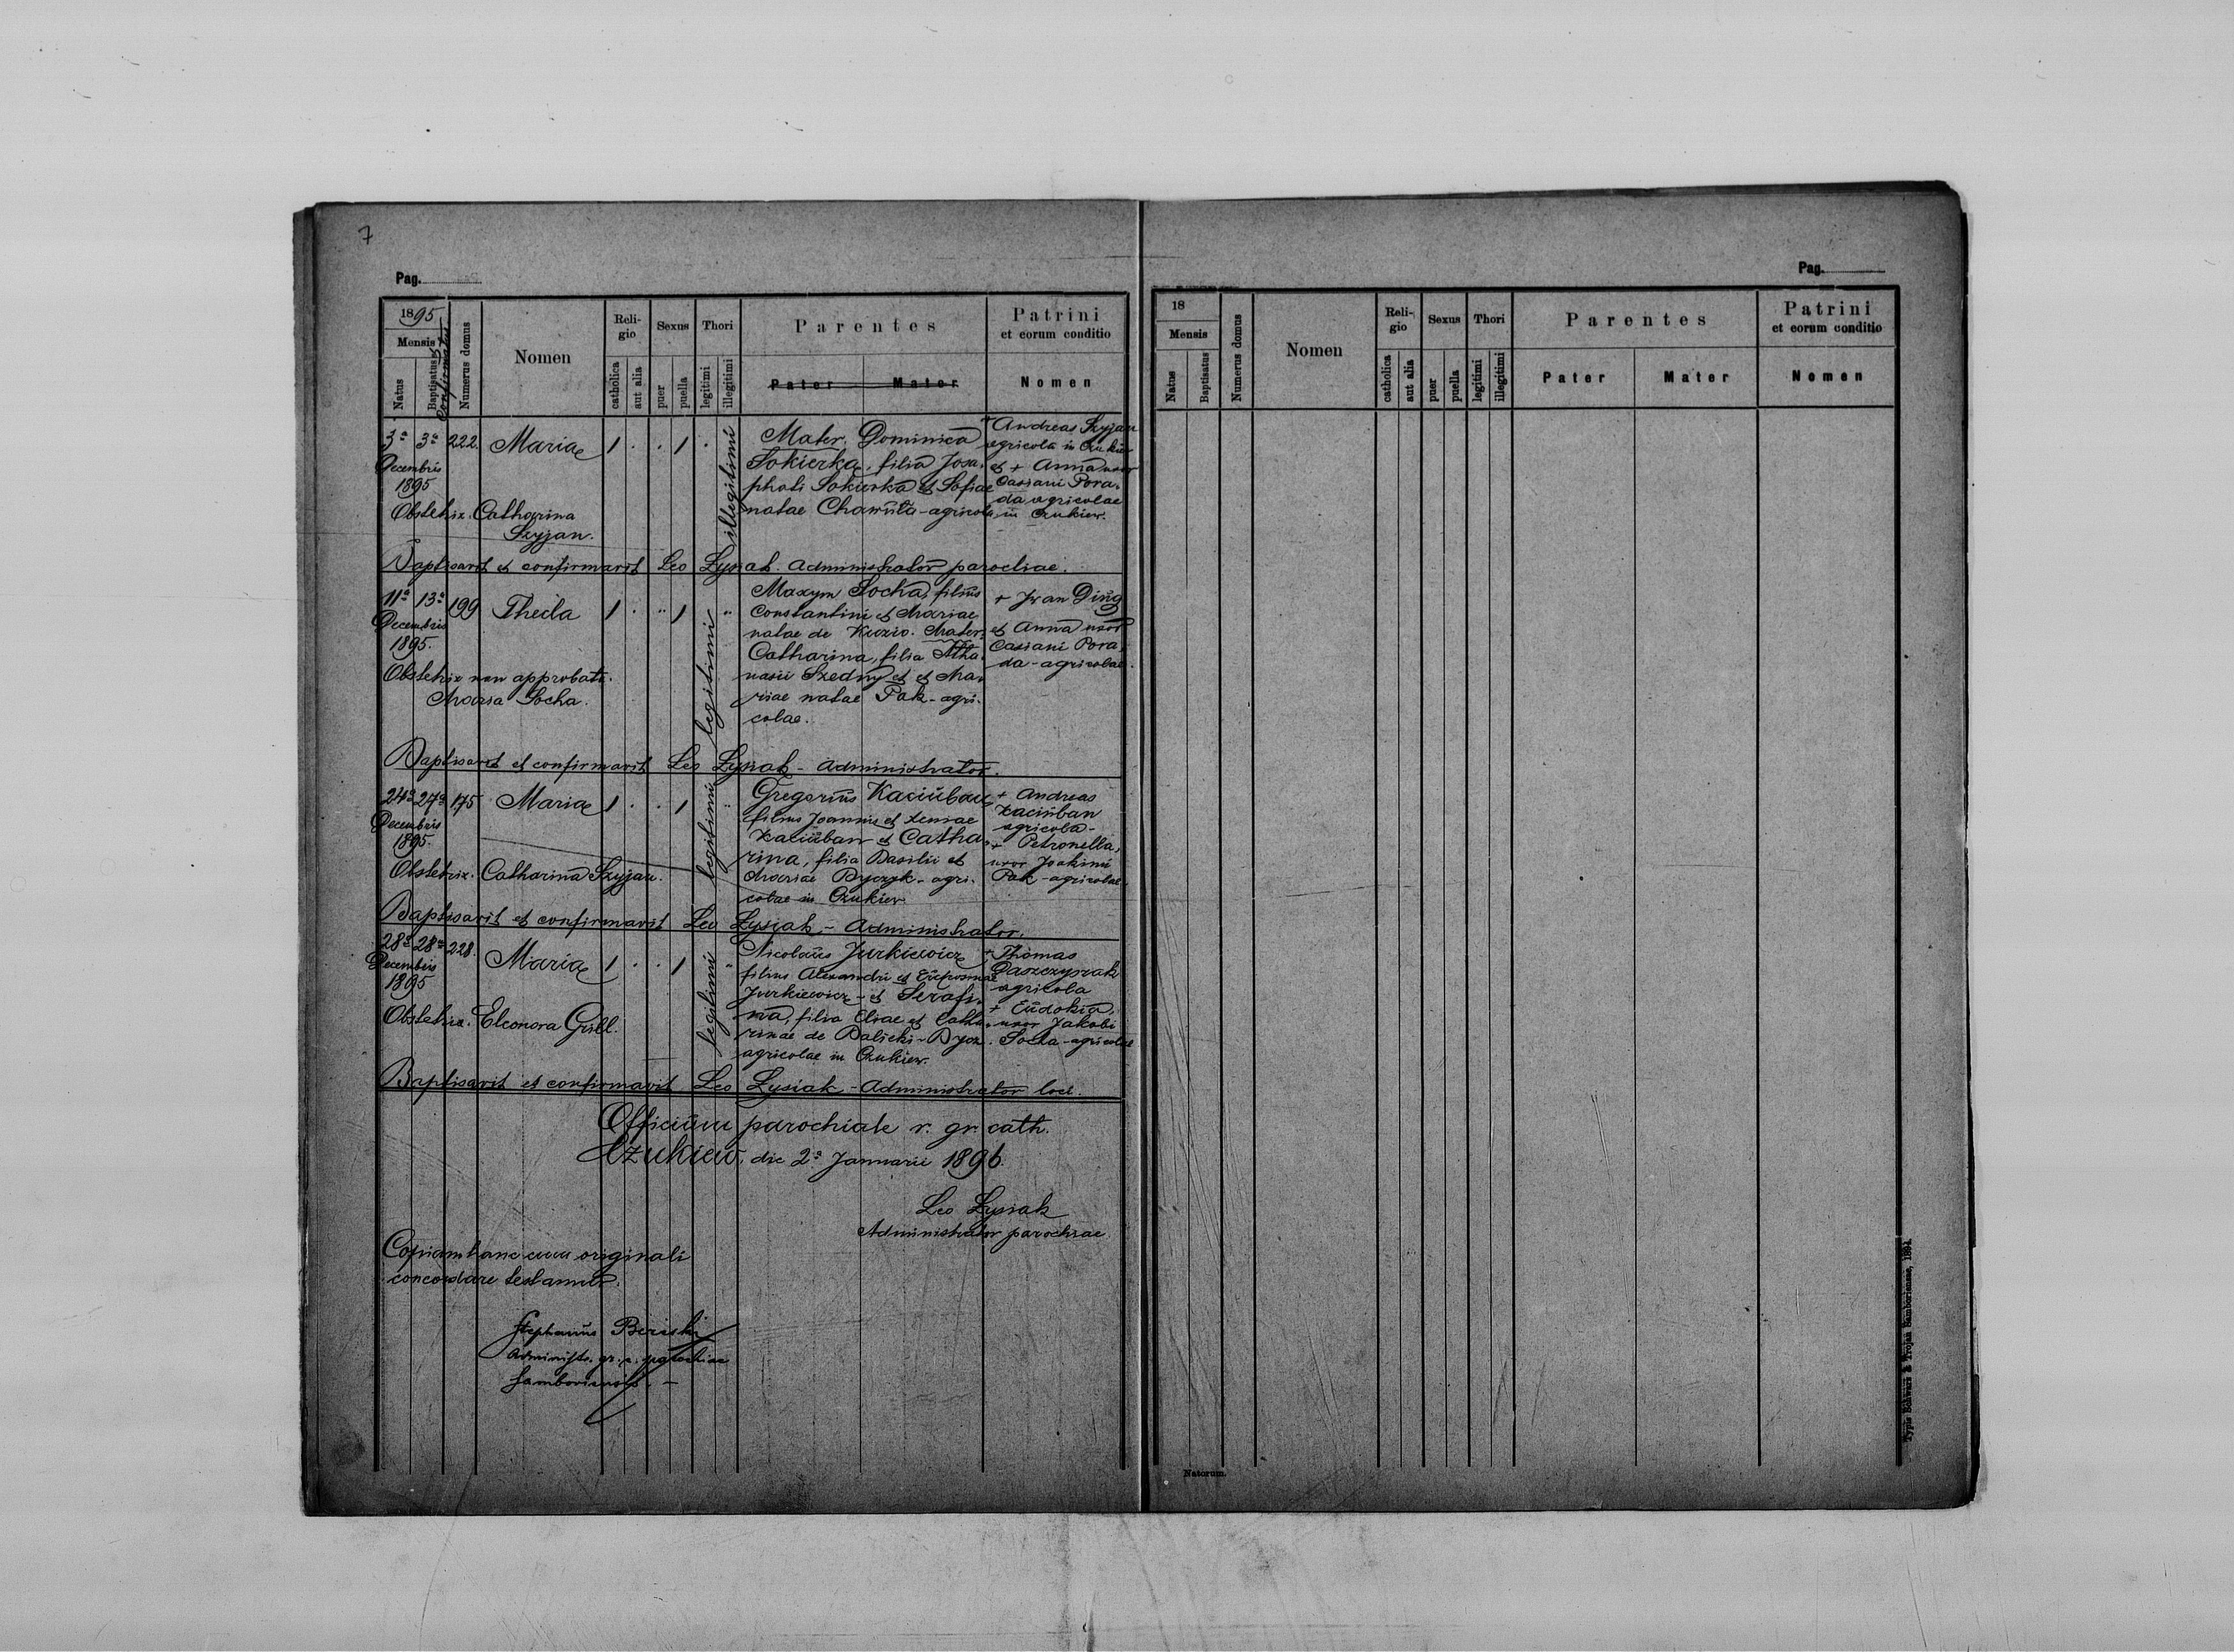 7
Pag.
1895
Mensis
Natus
Baptisatus
et Confirmatus
Numerus domus
Nomen
Religio
catholica
aut alia
Sexus
puer
puella
Thori
legitimi
illegitimi
Parentes
Pater Mater
Patrini
et eorum conditio
Nomen
3a 3a 222. Maria 1 . . 1 .
Decembris
1895
Obstetrix. Catharina
Szyjan.
illegitimi
Mater. Dominica
Sokierka, filia Josa-
phati Sokierka et Sofiae
natae Chawuła - agricola
+ Andreas Szyjan
agricola in Czukiew
et + Anna uxor
Casiani Pora-
da agricolae
in Czukiew.
Baptisavit et confirmavit Leo Łysiak. Administrator parochiae.
11a 13a 199 Thecla 1 . " 1 "
Decembris
1895.
Obstetrix non approbata.
Maria Socha.
legitimi
Maxym Socha, filius
Constantini et Mariae
natae de Kuzio. Mater:
Catharina, filia Atha-
nasii Szedny et et Ma-
riae natae Pak - agri-
colae.
+ Iwan Ding
et Anna uxor
Casiani Pora-
da - agricolae.
Baptisavit et confirmavit Leo Łysiak - Administrator.
24a 27a 175 Maria 1 . . 1 "
Decembris
1895.
Obstetrix. Catharina Szyjan.
legitimi
Gregorius Kaciuban
filius Joannis et Xeniae
Kaciuban et Catha-
rina, filia Basilii et
Mariae Dyczyk - agri-
colae in Czukiew
+ Andreas
Kaciuban
agricola -
+ Petronella,
uxor Joakimi
Pak - agricolae.
Baptisavit et confirmavit Leo Łysiak - Administrator.
28a 28a 228. Maria 1 . . 1 "
Decembris
1895
Obstetrix. Eleonora Grill.
legitimi
Nicolaus Jurkiewicz
filius Alexandri et Eufrosinae
Jurkiewicz - et Serafi-
na, filia Eliae et Catha-
rinae de Balicki - Dycz.
agricolae in Czukiew.
+ Thomas
Daszczyszak
agricola
+ Eudokia,
uxor Jakobi
Socha - agricolae
Baptisavit et confirmavit Leo Łysiak - Administrator loci.
Officium parochiale r. gr. cath.
Czukiew, die 2a Januarii 1896.
Leo Łysiak
Administrator parochiae
Copiam hanc cum originali
concordare testamur.
Stephanus
Administr. gr. c. parochiae
Samboriensis. -
Pag.
18
Mensis
Natus
Baptisatus
Numerus domus
Nomen
Religio
catholica
aut alia
Sexus
puer
puella
Thori
legitimi
illegitimi
Parentes
Pater
Mater
Patrini
et eorum conditio
Nomen
Natorum.
Typis Schwarz & Trojan Samboriensis, 1894.